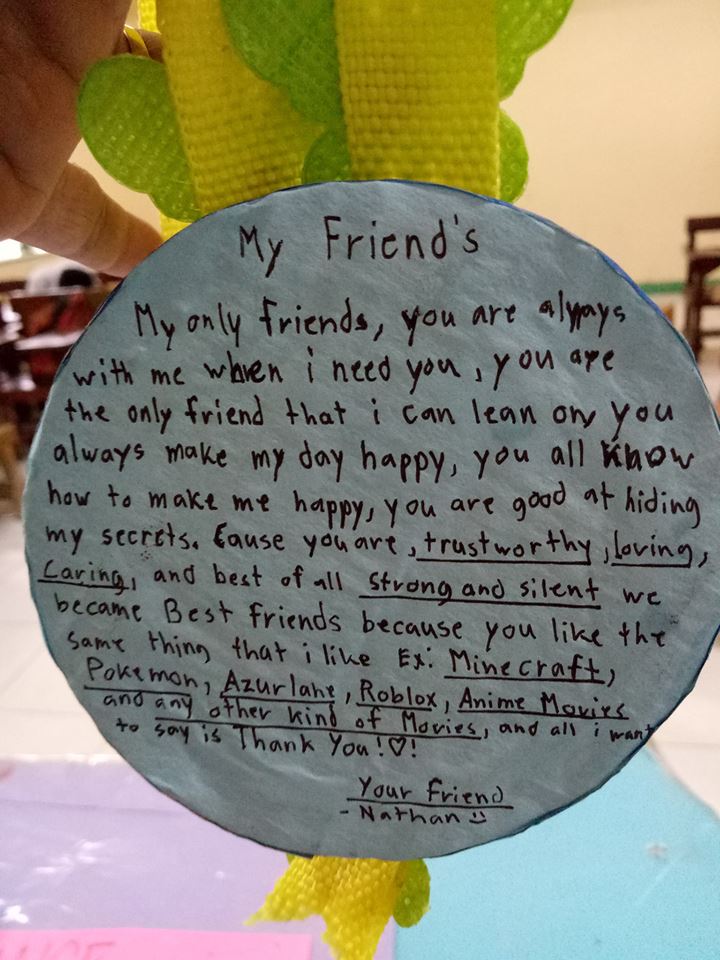 My Friend's
My only friends, you are always
with me when i need you, you are
the only friend that i can lean on, you
always make my day happy, you all know
how to make me happy, you are good at hiding
my secrets. Cause you are, trustworthy, loving,
Caring, and best of all strong and silent we
became Best friends because you like the
same thing that i like Ex: Minecraft,
Pokemon, Azurlane, Roblox, Anime Movies
and any other kind of Movies, and all i want
to say is Thank You!♡!
Your friend
- Nathan